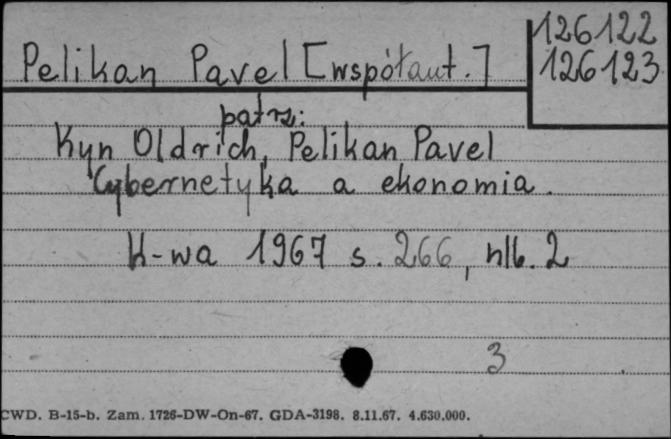 126122
Pelikan Pavel [współaut.] 126123
patrz:
Kyn Oldrich, Pelikan Pavel
Cybernetyka a ekonomia.
W-wa 1967 s. 266, nlb. 2
3
CWD. B-15-b. Zam. 1726-DW-On-67. GDA-3198. 8.11.67. 4.630.000.